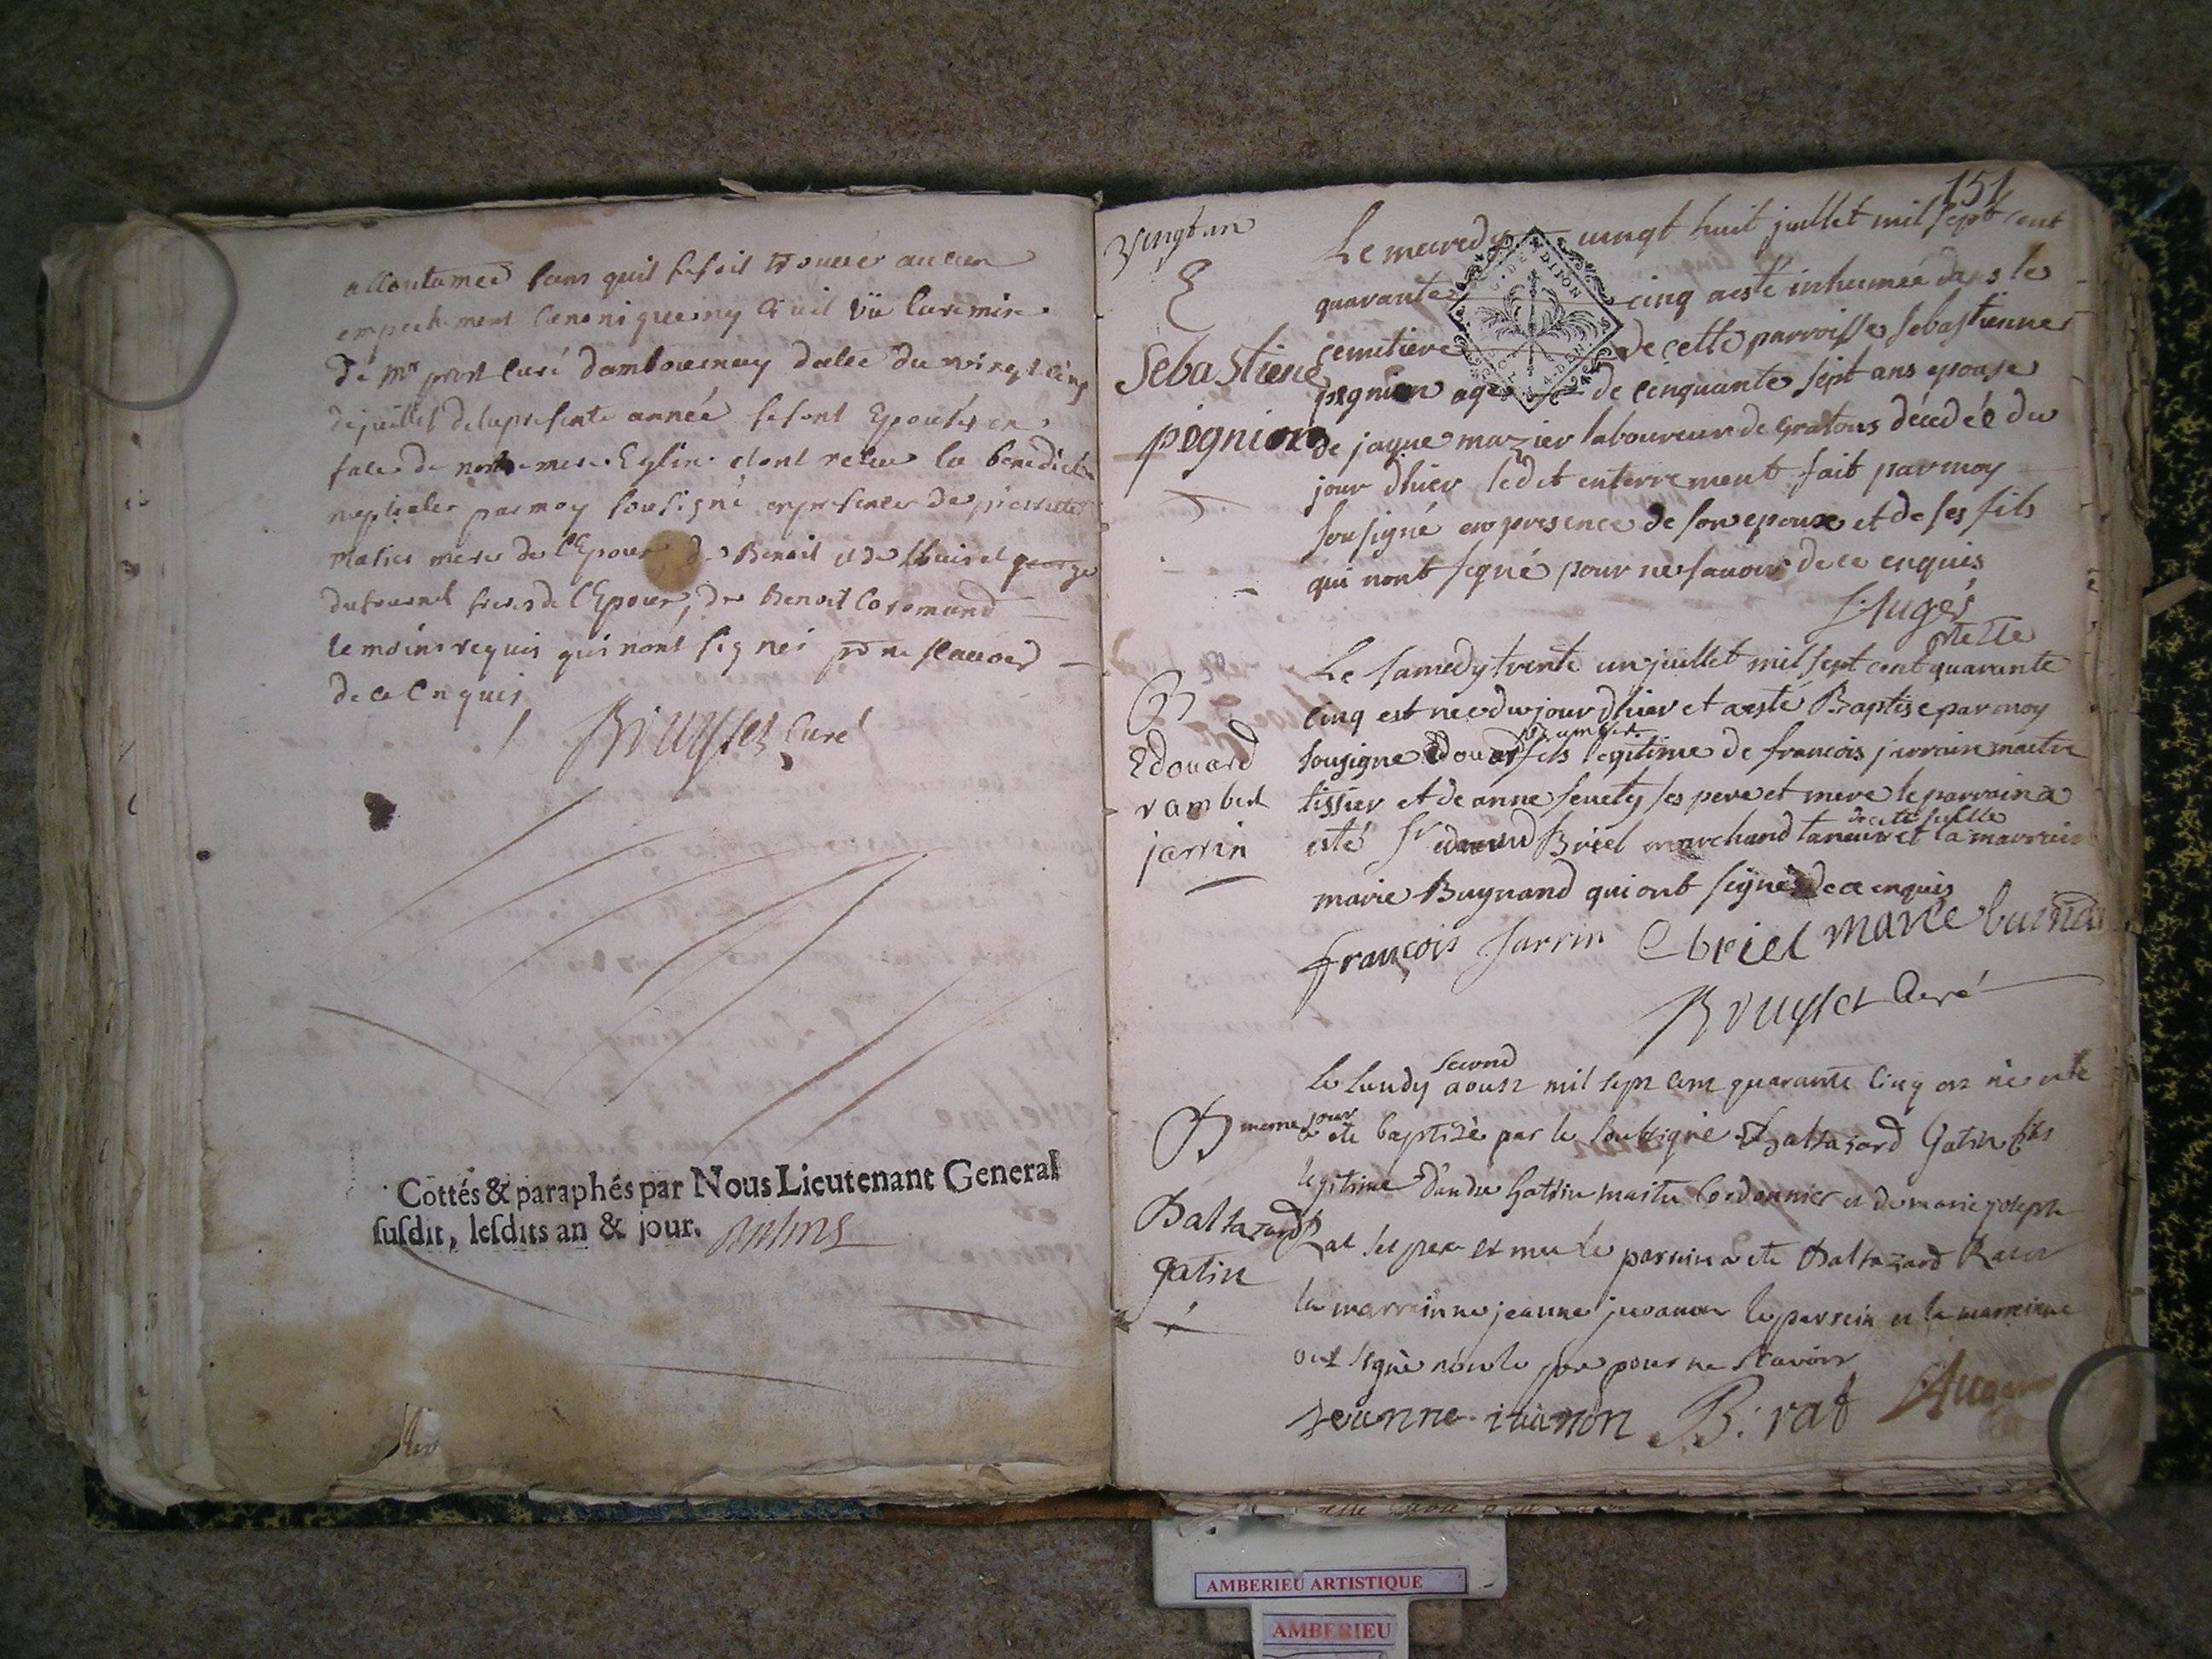 accoutumee sans quil se soit trouvér aucun
empechement canonique ny Civil vü la remise
de Mr curé dambournay datée du vingt cinq
de juillet de la presente année se sont Epousés en
face de notre mere Eglise et ont recu la benediction
nuptiale par moy sousigné en presence de pierrette
mere de l'Epoux de Benoit et de et george
dufournel freres de l'Epoux, de Benoit
temoins requis qui nont signés pr ne scavoir
de ce Enquis
Bruysset Curé
Cottés & paraphés par Nous Lieutenant General
susdit, lesdits an & jour.
151
vingt un
Le mecredy vingt huit juillet mil sept cent
quarante cinq a esté inhumée dans le
cemitiere de cette parroisse sebastienne
pegnion agée de cinquante sept ans epouse
de jaque mazier laboureur de gratous décedéé du
jour dhier ledit enterrement fait par moy
sousigné en presence de son epoux et de ses fils
qui nont signé pour ne savoir de ce enquis
Sebastiene
pegnion
G. DE DIJON
Auger
Le samedy trente un juillet mil sept cent quarante
cinq est né du jour dhier et a esté Baptisé par moy
sousigné Edouard rambert fils legitime de francois jarrain maitre
tissier et de anne sevety ses pere et mere le parrain a
esté Sr Briel marchand taneur et la marraine
marie Buynand qui ont signés de ce enquis
B
Edouard
rambert
jarrin
françois Jarrin E briel marie
Bruysset Curé
le lundy second aoust mil sept cent quarante cinq est né et le
meme jour a ete baptisé par le soussigné Balthazard Gatin fils
legitime d'andre Gattin maitre Cordonnier et de marie joseph
Rat ses pere et mere le parrain a ete Balthazard Rat
la marrainne jeanne le parrein et la marreinne
ont signé non le pere pour ne scavoir
B
Baltazard
gatin
jeanne B: rat Auger
AMBERIEU ARTISTIQUE
AMBERIEU